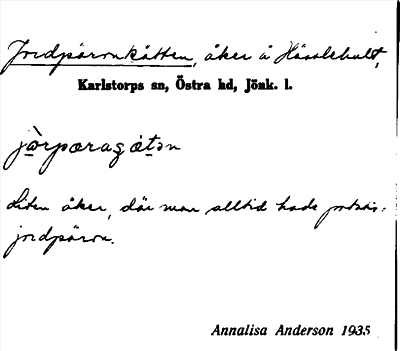 Jordpäronkätten, åker å Hässlehult,
Karlstorps sn, Östra hd, Jönk. l.
jòrpæraɡɕ́ɛtən
Liten åker, där man alltid hade
jordpäron.
Annalisa Anderson 1935